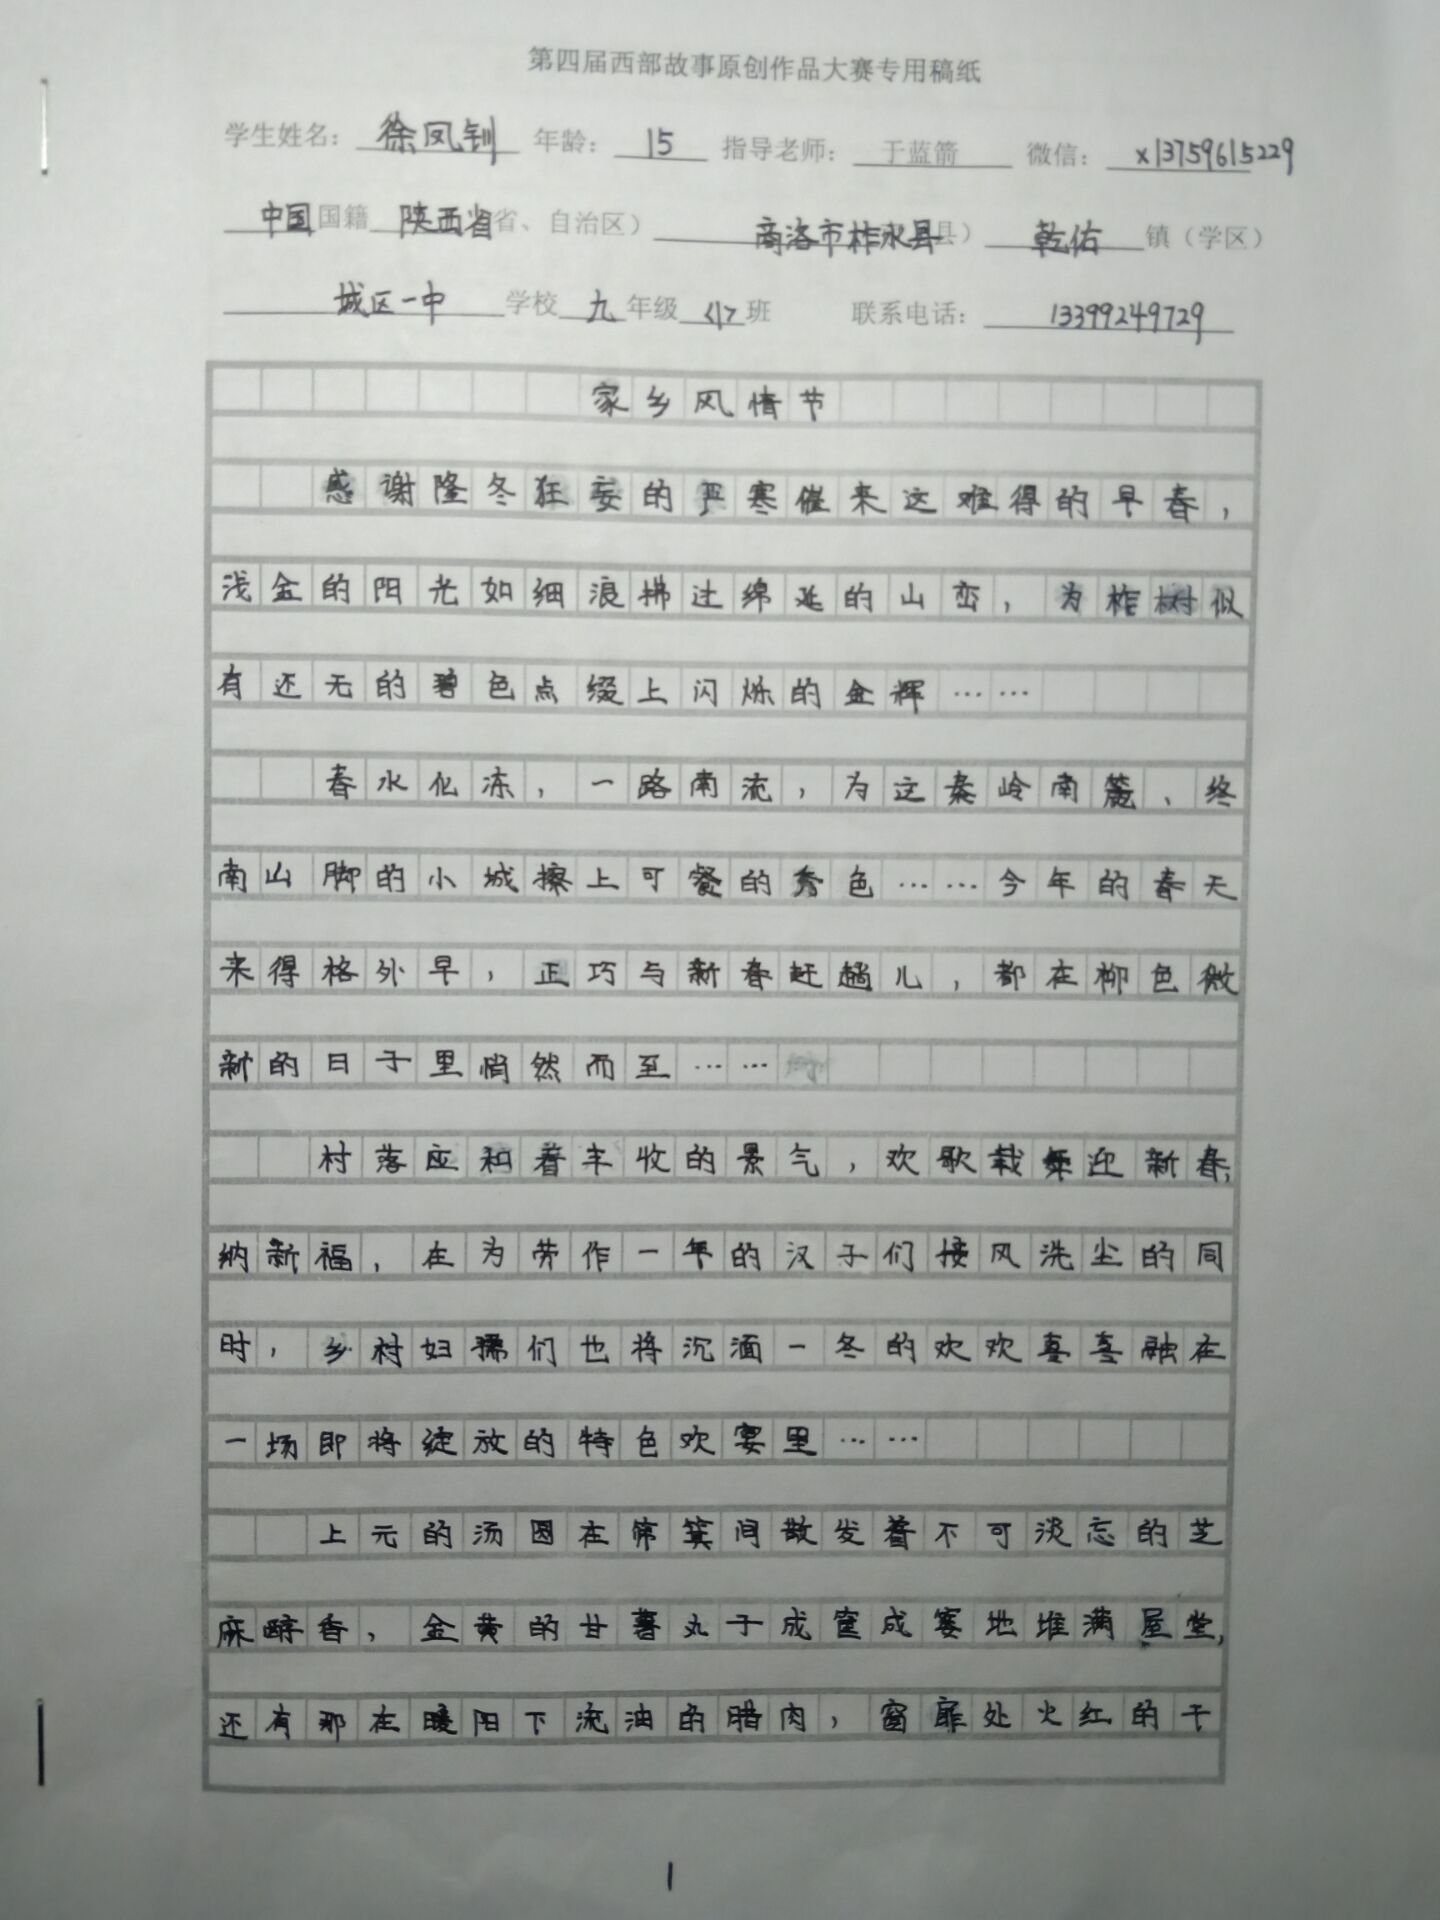 第四届西部故事原创作品大赛专用稿纸
学生姓名：徐凤钊 年龄：15 指导老师：于蓝箭 微信：x13759615229
中国国籍 陕西省省、自治区） 商洛市柞水县县） 乾佑镇（学区）
城区一中学校 九年级〈1〉班 联系电话：13399249729
家乡风情节
感谢隆冬狂妄的严寒催来这难得的早春，
浅金的阳光如细浪拂过绵延的山峦，为柞树似
有还无的碧色点缀上闪烁的金辉……
春水化冻，一路南流，为这秦岭南麓、终
南山脚的小城擦上可餐的秀色……今年的春天
来得格外早，正巧与新春赶趟儿，都在柳色微
新的日子里悄然而至……
村落应和着丰收的景气，欢歌载舞迎新春，
纳新福，在为劳作一年的汉子们接风洗尘的同
时，乡村妇孺们也将沉湎一冬的欢欢喜喜融在
一场即将绽放的特色欢宴里……
上元的汤圆在筛箕间散发着不可淡忘的芝
麻醇香，金黄的甘薯丸子成筐成篓地堆满屋堂，
还有那在暖阳下流油的腊肉，窗扉处火红的干
1